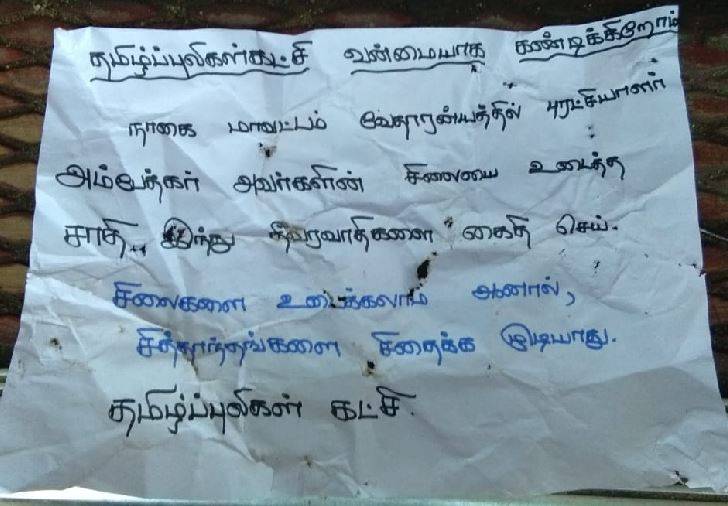 தமிழ்ப்புலிகள்கட்சி வன்மையாக கண்டிக்கிறோம்
நாகை மாவட்டம் வேதாரன்யத்தில் புரட்சியாளர்
அம்பேத்கர் அவர்களின் சிலையை உடைத்த
சாதி,, இந்து தீவரவாதிகளை கைது செய்.
சிலைகளை உடைக்கலாம் ஆனால்,
சித்தாந்தங்களை சிதைக்க முடியாது.
தமிழ்ப்புலிகள் கட்சி.